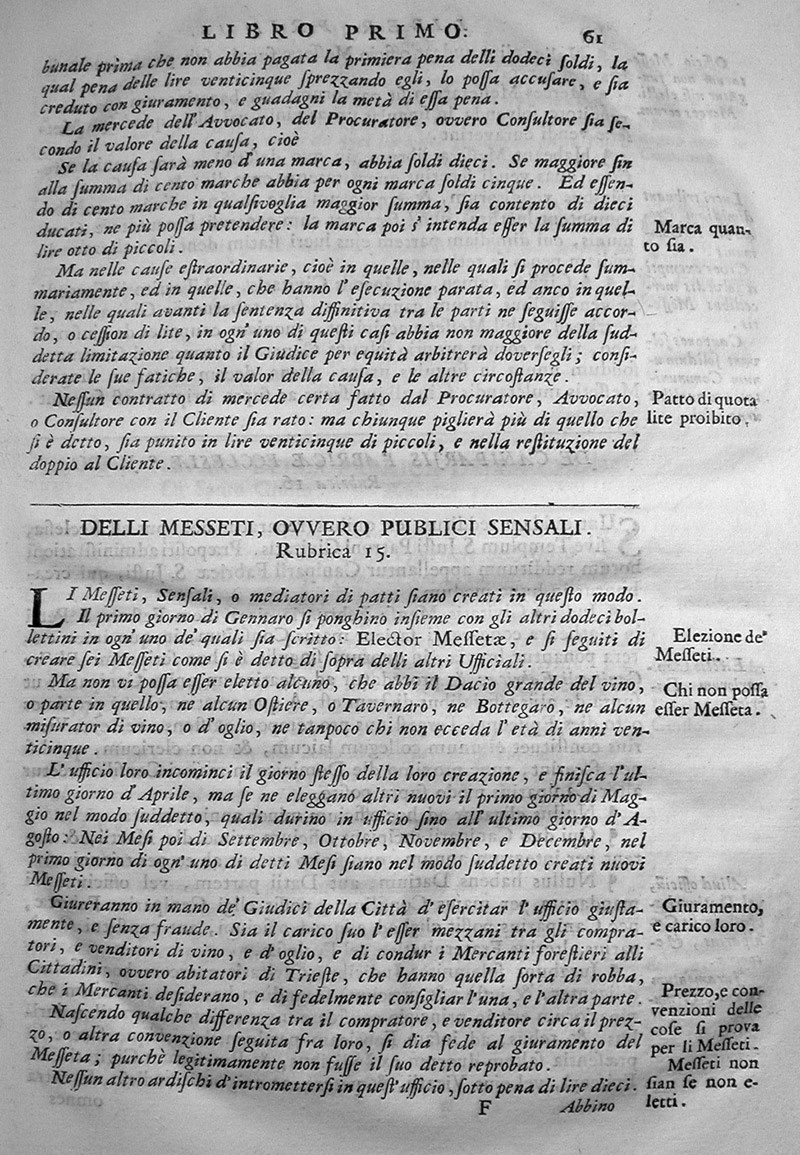 LIBRO PRIMO. 61
bunale prima che non abbia pagata la primiera pena delli dodeci ſoldi, la
qual pena delle lire venticinque ſprezzando egli, lo poſſa accuſare, e ſia
creduto con giuramento, e guadagni la metà di eſſa pena.
La mercede dell'Avvocato, del Procuratore, ovvero Conſultore ſia ſe-
condo il valore della cauſa, cioè
Se la cauſa ſarà meno d'una marca, abbia ſoldi dieci. Se maggiore ſin
alla ſumma di cento marche abbia per ogni marca ſoldi cinque. Ed eſſen-
do di cento marche in qualſivoglia maggior ſumma, ſia contento di dieci
ducati, ne più poſſa pretendere: la marca poi s'intenda eſſer la ſumma di
lire otto di piccoli.
Marca quan-
to ſia.
Ma nelle cauſe eſtraordinarie, cioè in quelle, nelle quali ſi procede ſum-
mariamente, ed in quelle, che hanno l'eſecuzione parata, ed anco in quel-
le, nelle quali avanti la ſentenza diffinitiva tra le parti ne ſeguiſſe accor-
do, o ceſſion di lite, in ogn'uno di queſti caſi abbia non maggiore della ſud-
detta limitazione quanto il Giudice per equità arbitrerà doverſegli; conſi-
derate le ſue fatiche, il valor della cauſa, e le altre circoſtanze.
Neſſun contratto di mercede certa fatto dal Procuratore, Avvocato,
o Conſultore con il Cliente ſia rato: ma chiunque piglierà più di quello che
ſi è detto, ſia punito in lire venticinque di piccoli, e nella reſtituzione del
doppio al Cliente.
Patto di quota
lite proibito.
DELLI MESSETI, OVVERO PUBLICI SENSALI.
Rubrica 15.
LI Meſſeti, Senſali, o mediatori di patti ſiano creati in queſto modo.
Il primo giorno di Gennaro ſi ponghino inſieme con gli altri dodeci bol-
lettini in ogn'uno de' quali ſia ſcritto: Elector Meſſetæ, e ſi ſeguiti di
creare ſei Meſſeti come ſi è detto di ſopra delli altri Ufficiali.
Elezione de'
Meſſeti.
Ma non vi poſſa eſſer eletto alcuno, che abbi il Dacio grande del vino,
o parte in quello, ne alcun Oſtiere, o Tavernaro, ne Bottegaro, ne alcun
miſurator di vino, o d'oglio, ne tanpoco chi non ecceda l'età di anni ven-
ticinque.
Chi non poſſa
eſſer Meſſeta.
L'ufficio loro incominci il giorno ſteſſo della loro creazione, e finiſca l'ul-
timo giorno d'Aprile, ma ſe ne eleggano altri nuovi il primo giorno di Mag-
gio nel modo ſuddetto, quali durino in ufficio ſino all'ultimo giorno d'A-
goſto: Nei Meſi poi di Settembre, Ottobre, Novembre, e Decembre, nel
primo giorno di ogn'uno di detti Meſi ſiano nel modo ſuddetto creati nuovi
Meſſeti.
Giureranno in mano de' Giudici della Città d'eſercitar l'ufficio giuſta-
mente, e ſenza fraude. Sia il carico ſuo l'eſſer mezzani tra gli compra-
tori, e venditori di vino, e d'oglio, e di condur i Mercanti foreſtieri alli
Cittadini, ovvero abitatori di Trieſte, che hanno quella ſorta di robba,
che i Mercanti deſiderano, e di fedelmente conſigliar l'una, e l'altra parte.
Giuramento,
e carico loro.
Naſcendo qualche differenza tra il compratore, e venditore circa il prez-
zo, o altra convenzione ſeguita fra loro, ſi dia fede al giuramento del
Meſſeta; purchè legitimamente non fuſſe il ſuo detto reprobato.
Prezzo, e con-
venzioni delle
coſe ſi prova
per li Meſſeti.
Neſſun altro ardiſchi d'intrometterſi in queſt'ufficio, ſotto pena di lire dieci.
Meſſeti non
ſian ſe non e-
letti.
F Abbino